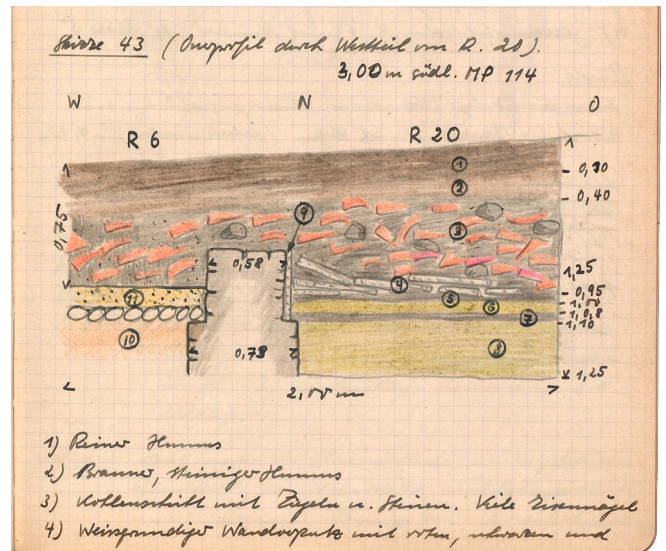 Skizze 43 (Querprofil durch Westteil von R. 20).
3,00 m südl. MP 114
W N O
R 6 R 20
1
2
0,30
0,40
0,75
9
3
0,58
4
1,25
11
5
6
0,95
1,00
7
1,08
1,10
10
0,78
8
1,25
2,00 m
1) Reiner Humus
2) Brauner, steiniger Humus
3) Kohlenschitt mit Ziegeln u. Steinen. Viele Eisennägel
4) Weissgrundiger Wandverputz mit roten, schwarzen und